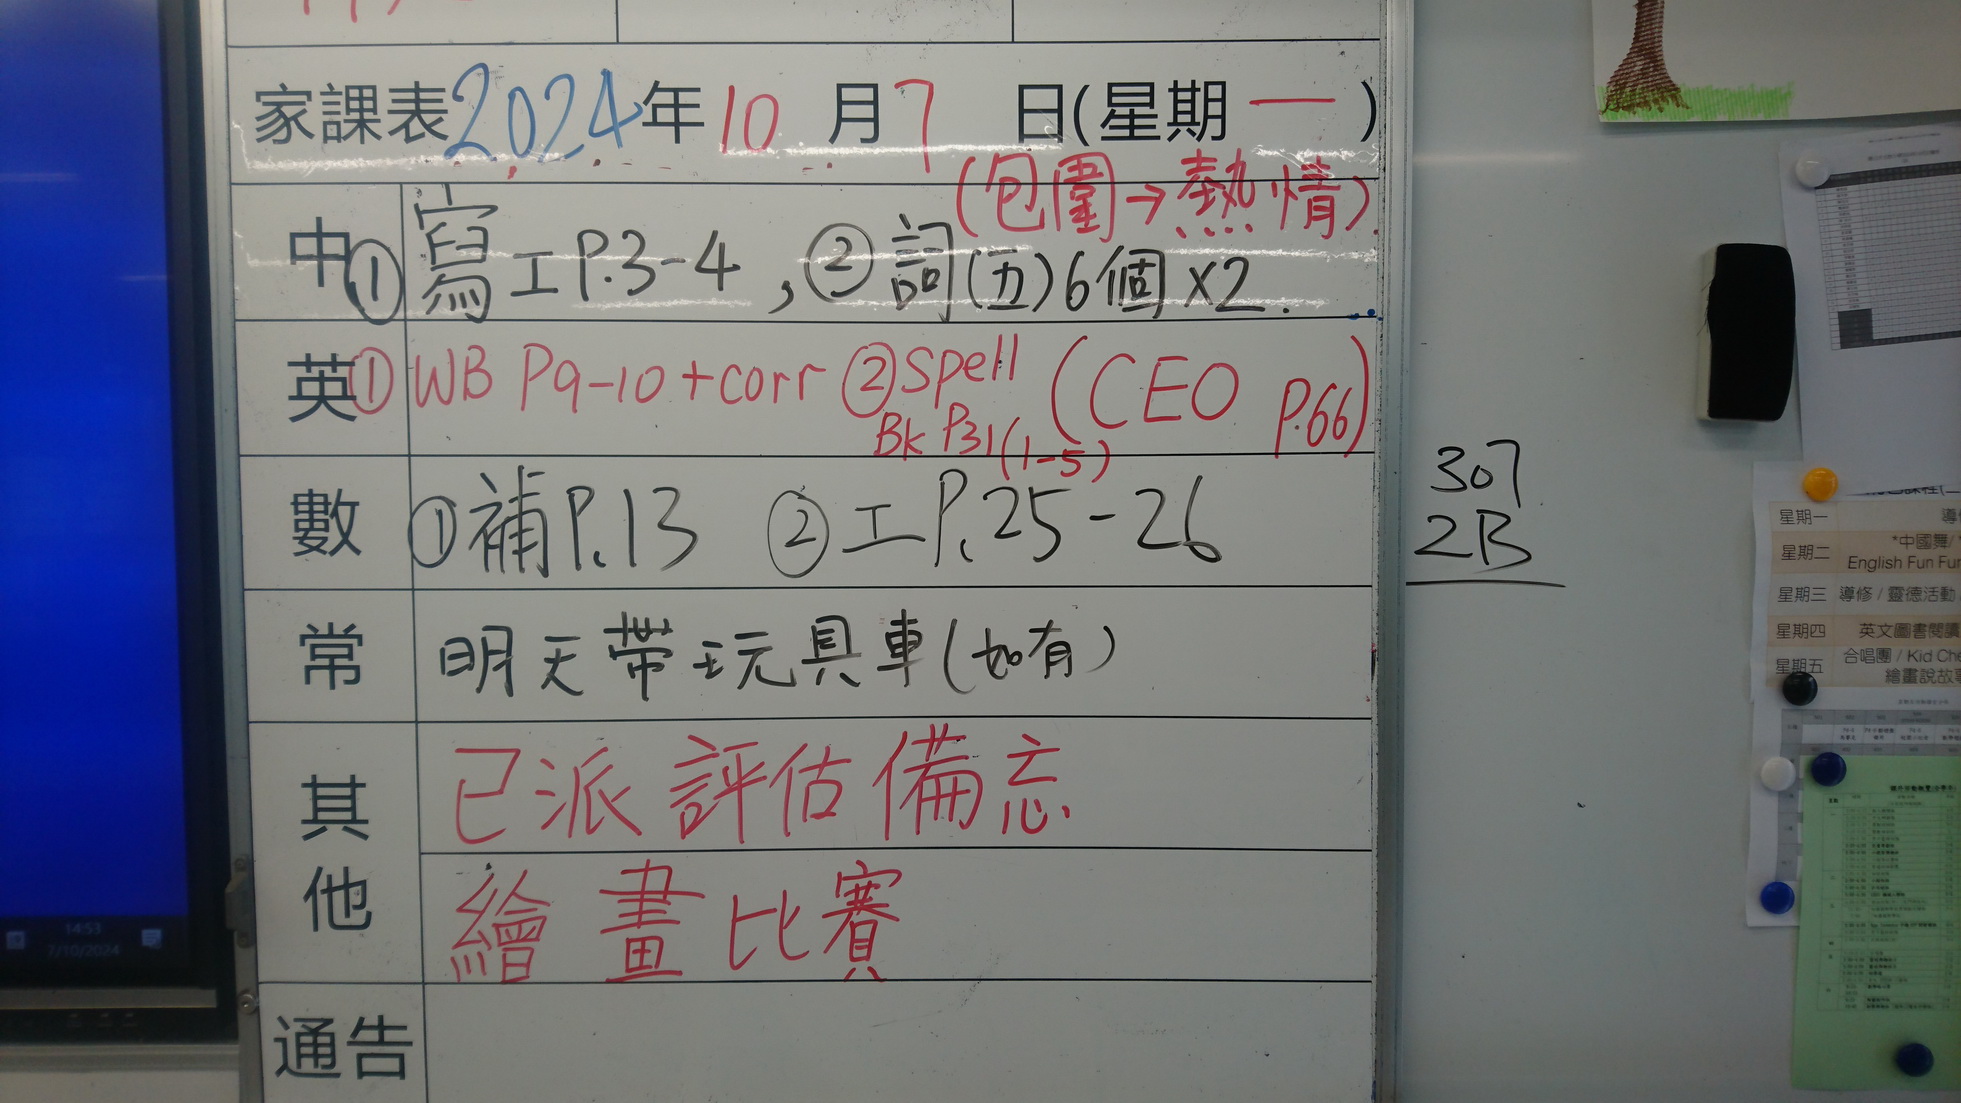 家課表2024年10月7日(星期一)
(包圍→熱情).
中 ①寫工P.3-4, ②詞(五)6個x2.
英 ①WB P9-10+corr ②Spell (CEO P.66)
Bk P31(1-5)
數 ①補P.13 ②工P.25-26
常 明天帶玩具車(如有)
其他 已派評估備忘
繪畫比賽
通告
307
2B
星期一
星期二 *中國舞/
English Fun Fun
星期三 導修/靈德活動
星期四 英文圖書閱讀
星期五 合唱團/Kid Che
繪畫說故事
14:53
7/10/2024